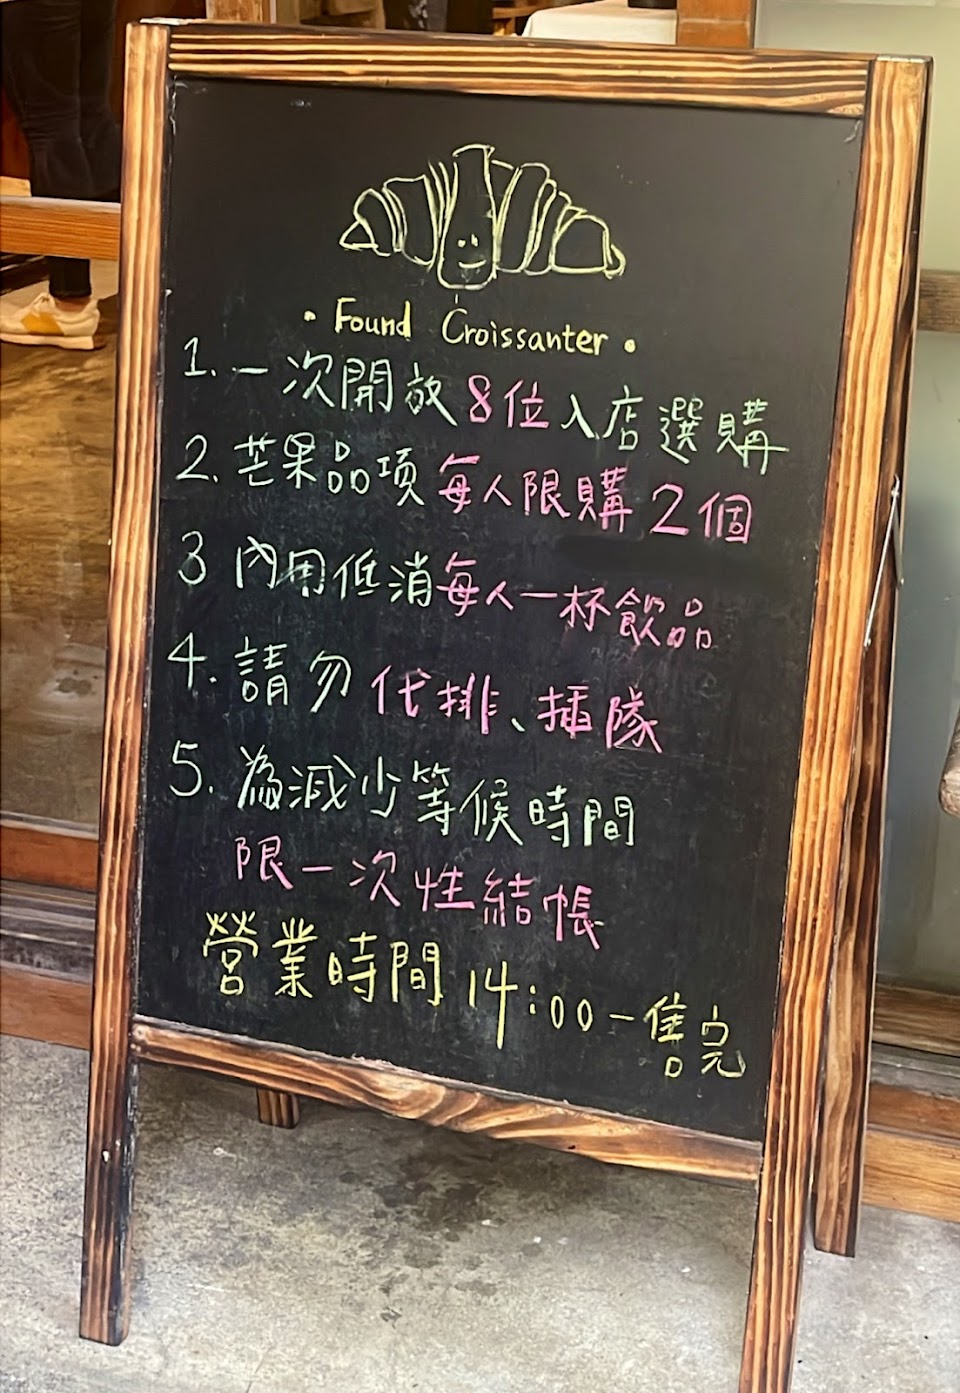 · Found Croissanter ·
1. 一次開放8位入店選購
2. 芒果品項每人限購2個
3 內用低消每人一杯飲品
4. 請勿代排、插隊
5. 為減少等候時間
限一次性結帳
營業時間 14:00-售完